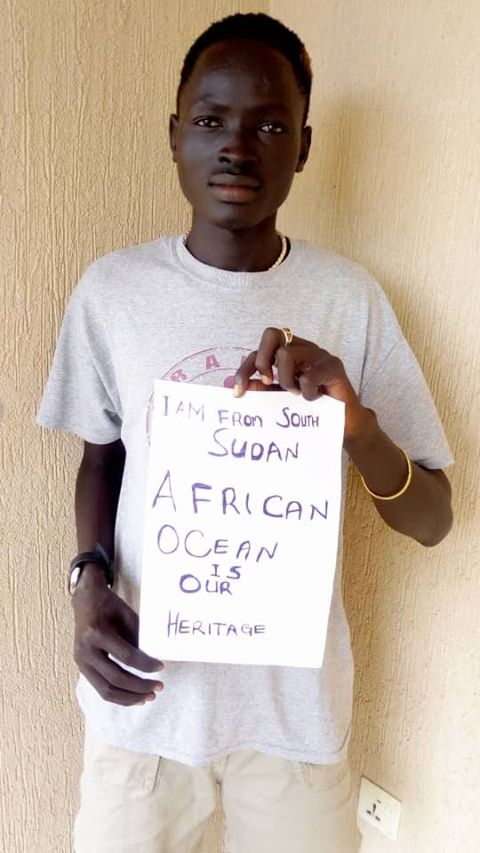 BA
I AM FROM SOUTH
SUDAN
AFRICAN
OCEAN
IS
OUR
HERITAGE